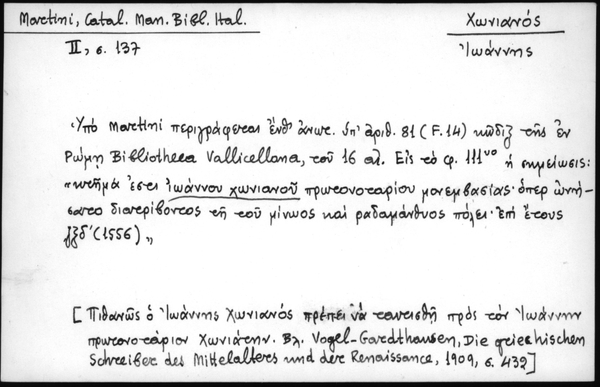 Martini, Catal. Man. Bibl. Ital.
II, σ. 137
Χωνιανός
Ἰωάννης
Ὑπὸ Martini περιγράφεται ἔνθ' ἀνωτ. ὑπ' ἀριθ. 81 (F. 14) κῶδιξ τῆς ἐν
Ρώμῃ Bibliotheca Vallicellana, τοῦ 16 αἰ. Εἰς τὸ φ. 111νο ἡ σημείωσις:
"κτῆμά ἐστι ἰωάννου χωνιανοῦ πρωτονοταρίου μονεμβασίας· ὅπερ ὠνή-
σατο διατρίβοντος τῇ τοῦ μίνωος καὶ ραδαμάνθυος πόλει· ἐπὶ ἔτους
͵ζξδ' (1556)„
[Πιθανῶς ὁ Ἰωάννης Χωνιανός πρέπει νὰ ταυτισθῇ πρὸς τὸν Ἰωάννην
πρωτονοτάριον Χωνιάτην. Βλ. Vogel-Gardthausen, Die griechischen
Schreiber des Mittelalters und der Renaissance, 1909, σ. 432]